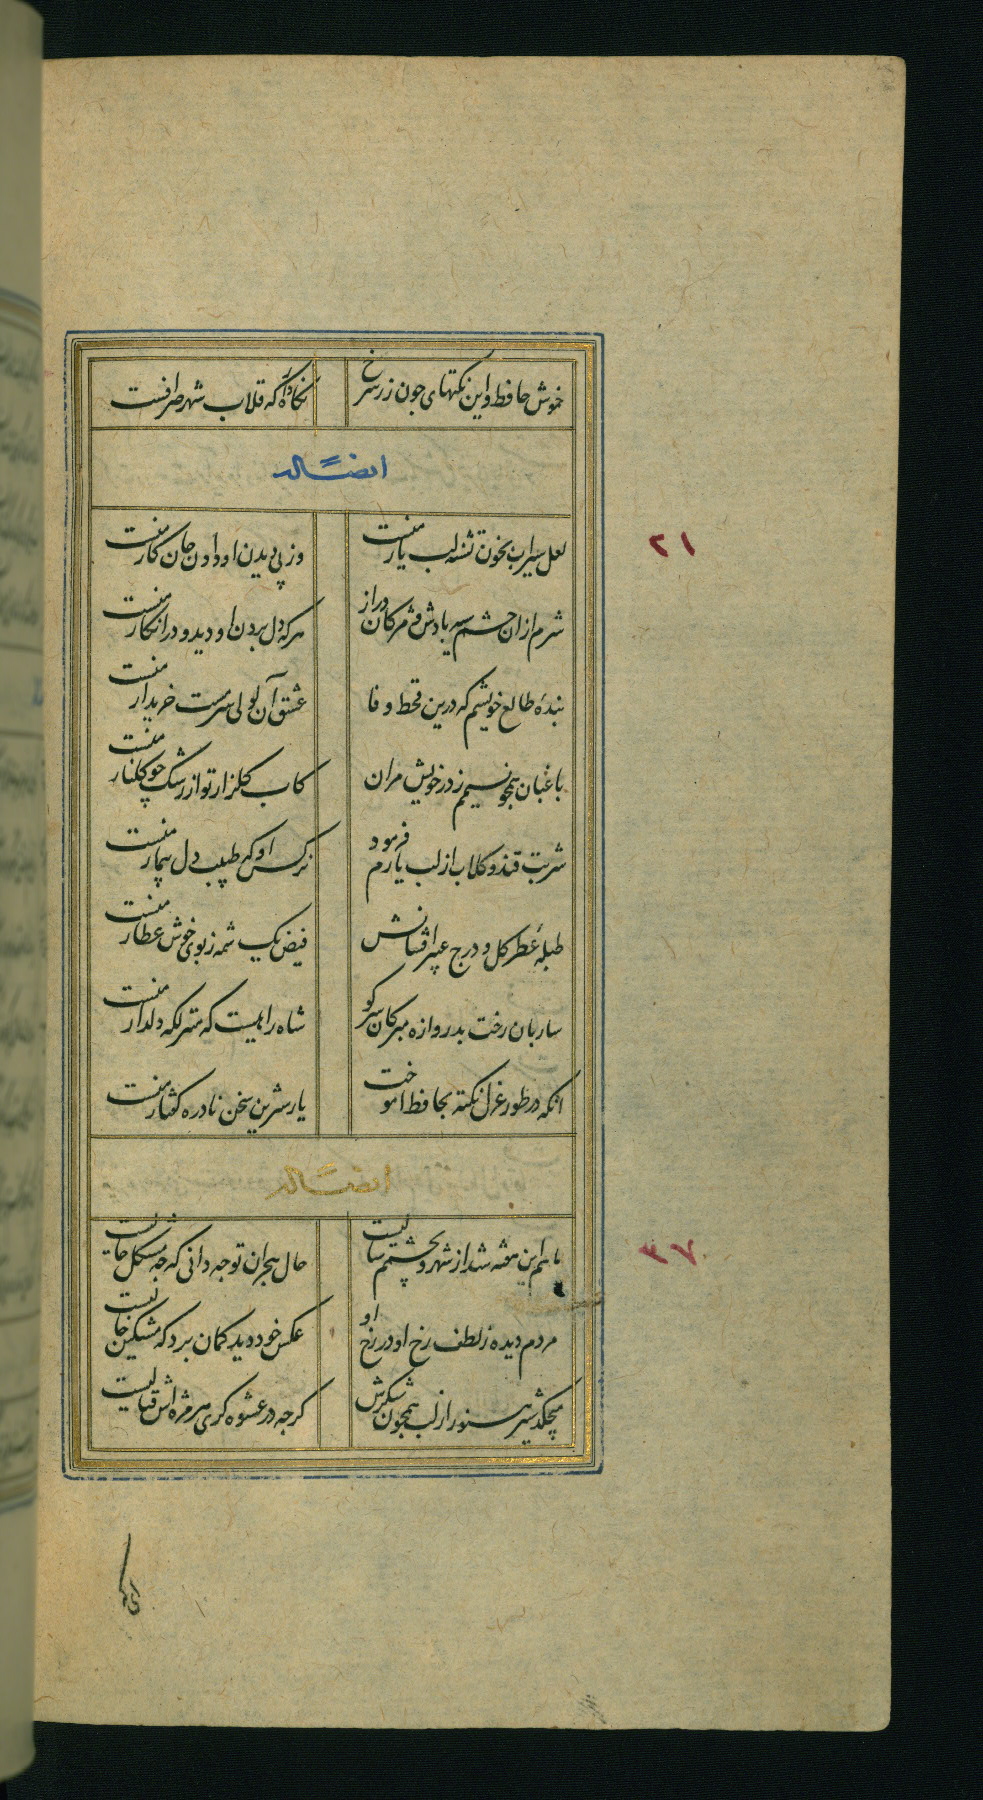 خموش حافظ و این نکتهای چون زر سرخ نکاه دار که قلاب شهر صرافست
ایضاً له
لعل سیراب بخون تشنه لب یار منست وز پی دیدن او دادن جان کار منست
شرم ازان چشم سیه بادش و مژکان دراز هر که دل بردن او دید و در انکار منست
بندهٔ طالع خویشم که درین قحط وفا عشق آن لولی سرمست خریدار منست
باغبان همچو نسیمم ز در خویش مران کاب کلزار تو از رشک چو کلنار منست
شربت قند و کلاب از لب یارم فرمود نرکس او که طبیب دل بیمار منست
طبلهٔ عطر کل و درج عبیر افشانش فیض یک شمه ز بوی خوش عطار منست
ساربان رخت بدروازه مبر کان سر کو شاه راهیست که منزلکه دلدار منست
انکه در طور غزل نکته بحافظ اموخت یار شیرین سخن نادره کفتار منست
۲۱
ایضاً له
ماهم این هفته شد از شهر و بچشمم سالیست حال هجران تو چه دانی که چه مشکل حالیست
مردم دیده ز لطف رخ او در رخ او عکس خود دید کمان برد که مشکین خالیست
میچکد شیر هنوز از لب همچون شکرش کرچه در عشوه کری هر مژه اش قتالیست
۳۷